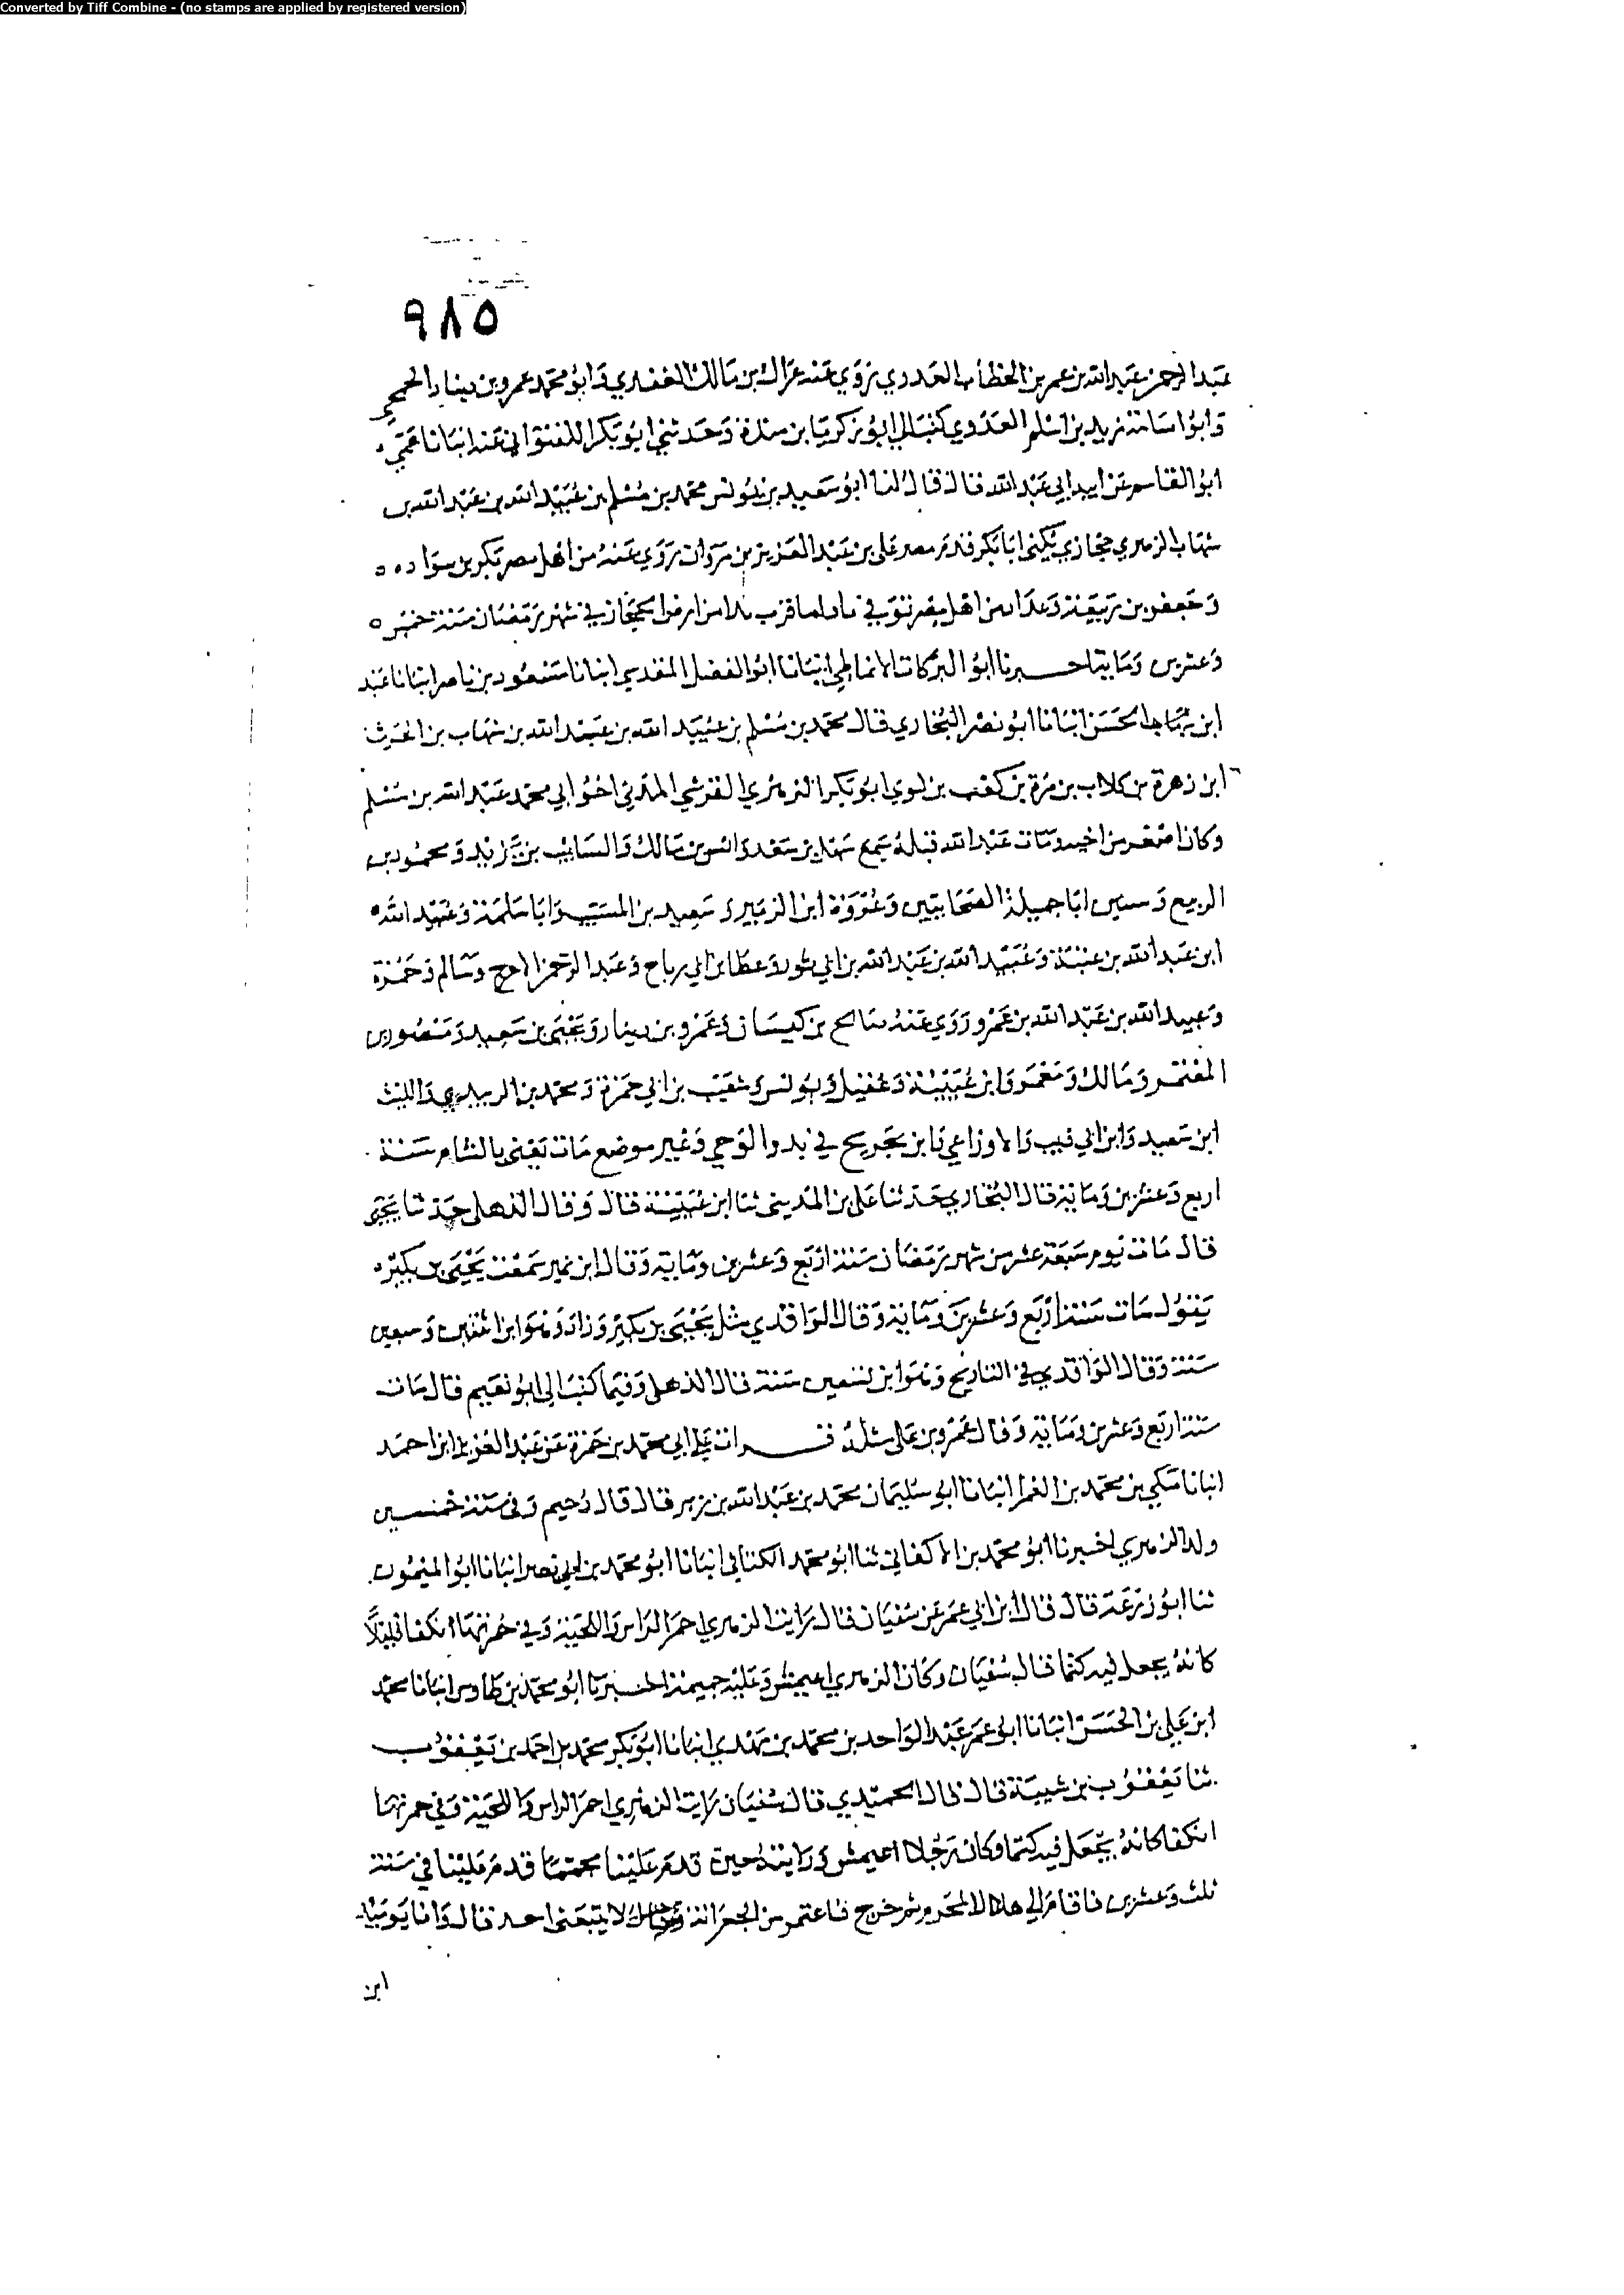 Converted by Tiff Combine - (no stamps are applied by registered version)
٩٨٥
عبد الرحمن عبد الله بن عمر بن الخطاب العدوي روي عنه عراك بن مالك الغفاري وابو محمد عمرو بن دينار الجمحي
وابو اسامة زيد بن اسلم العدوي كتب الي ابو زكريا بن مندة وحدثني ابو بكر اللفتواني عنه انبانا عمي
ابو القاسم عن ابيه ابي عبد الله قال قال لنا ابو سعيد بن يونس محمد بن مسلم بن عبيد الله بن عبد الله بن
شهاب الزهري حجازي يكنى ابا بكر قدم مصر على بن عبد العزيز بن مروان روي عنه من اهل مصر بكر بن سواده
وجعفر بن ربيعة من اهل مصر توفي في شهر رمضان سنة خمس
وعشرين وماية اخبرنا ابو البركات الانماطي انبانا ابو الفضل المقدسي انبانا مسعود بن ناصر انبانا عبد
ابن الحسن انبانا ابو نصر البخاري قال محمد بن مسلم بن عبيد الله بن عبد الله بن شهاب بن الحرث
ابن زهرة بن كلاب بن مرة بن كعب بن لوي ابو بكر الزهري القرشي المدني اخو ابي محمد عبد الله بن مسلم
وكان اصغر من اخيه ومات عبد الله قبله سمع سهل بن سعد وانس بن مالك والسايب بن يزيد ومحمود بن
الربيع وسنين ابا جميلة الصحابيين وعروة ابن الزبير و سعيد بن المسيب وابا سلمة وعبيد الله
ابن عبد الله بن عتبة وعبيد الله بن عبد الله بن ابي ثور وعطا بن ابي رباح وعبد الرحمن الاعرج وسالم وحمزة
وعبيد الله بن عبد الله بن عمر وروي عنه صالح بن كيسان وعمرو بن دينار ويحيى بن سعيد ومنصور بن
المعتمر ومالك ومعمر وابن عيينة وعقيل ويونس وشعيب بن ابي حمزة ومحمد بن الوليد الزبيدي والليث
ابن سعيد وابن ابي ذيب والاوزاعي وابن جريج في بدو الوحي وغير موضع مات يعني بالشام سنة
اربع وعشرين وماية قال البخاري حدثنا على بن المديني ثنا ابن عيينة قال وقال الذهلى حدثنا يحيى
قال مات يوم سبعة عشر من شهر رمضان سنة اربع وعشرين وماية وقال ابن نمير سمعت يحيى بن بكير
يقول مات سنة اربع وعشرين وماية وقال الواقدي مثل يحيى بن بكير وزاد وهو ابن اثنين وسبعين
سنة وقال الواقدي في التاريخ وهو ابن تسعين سنة قال الذهلى وفيما كتب الي ابو نعيم قال مات
سنة اربع وعشرين وماية وقال عمرو بن على مثله قرات على ابي محمد بن حمزة عن عبد العزيز ابن احمد
انبانا مكي بن محمد بن الغمر انبانا ابو سليمان محمد بن عبد الله بن زبر قال قال دحيم وفي سنة خمسين
ولد الزهري اخبرنا ابو محمد بن الاكفاني ثنا ابو محمد الكتاني انبانا ابو محمد بن ابي نصر انبانا ابو الميمون
ثنا ابو زرعة قال قال ابن ابي عمر عن سفيان قال رايت الزهري احمر الراس واللحية وفي حمرتها انكفا قليلا
كانه يجعل فيه كتما قال سفيان وكان الزهري اعيمش وعليه جميمة اخبرنا ابو محمد بن طاوس انبانا محمد
ابن علي بن الحسن انبانا ابو عمر عبد الواحد بن محمد بن مهدي انبانا ابو بكر محمد بن احمد بن يعقوب
ثنا يعقوب بن شيبة قال قال الحميدي قال سفيان رايت الزهري احمر الراس واللحية وفي حمرتها
انكفا كانه يجعل فيه كتما وكان رجلا اعيمش ورايته حين قدم علينا محتما قدم علينا في سنة
ثلث وعشرين فاقام الي هلال المحرم ثم خرج فاعتمر من الجعرانة لا يتبعني احد قال وانا يوميذ
ابن